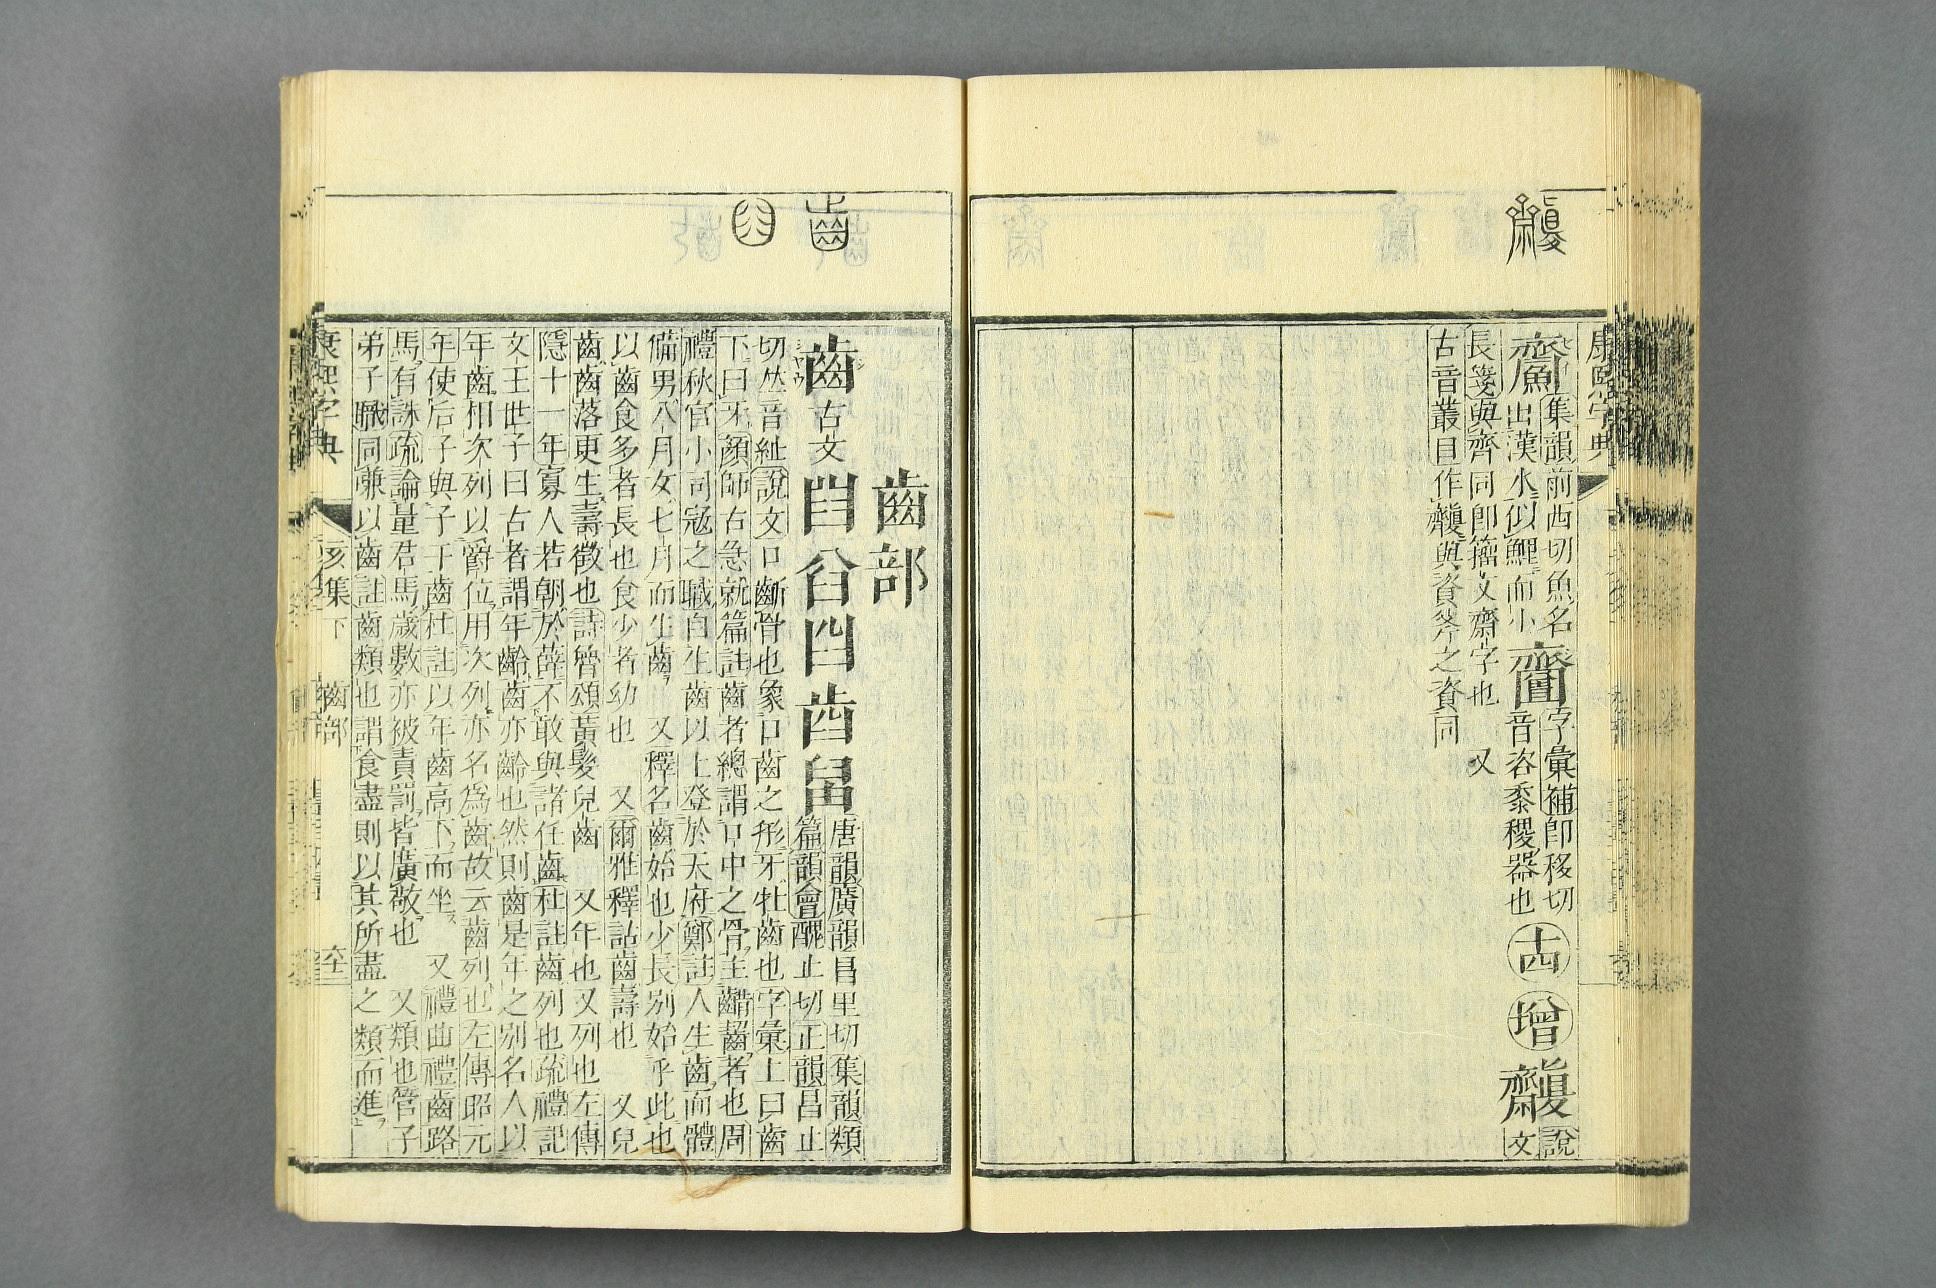 康熙字典
集韻前西切魚名
出漢水似鯉而小
字彙補卽移切
音咨黍稷器也
古
增
說
文
長箋與齊同卽籀文齋字也 又
古音叢目作與資斧之資同
齒部
齒古文
唐韻廣韻昌里切集韻類
篇韻會醜止切正韻昌止
切𠀤音紪說文口齗骨也象口齒之形牙牡齒也字彙上曰齒
下曰牙顏師古急就篇註齒者總謂口中之骨主齰齧者也周
禮秋官小司寇之職自生齒以上登於天府鄭註人生齒而體
備男八月女七月而生齒 又釋名齒始也少長別始乎此也
以齒食多者長也食少者幼也 又爾雅釋詁齒壽也 又兒
齒齒落更生壽徵也詩魯頌黃髮兒齒 又年也又列也左傳
隱十一年寡人若朝於薛不敢與諸任齒杜註齒列也疏禮記
文王世子曰古者謂年齡齒亦齡也然則齒是年之別名人以
年齒相次列以爵位用次列亦名爲齒故云齒列也左傳昭元
年使后子與子干齒杜註以年齒高下而坐 又禮曲禮齒路
馬有誅疏論量君馬歲數亦被責罰皆廣敬也 又類也管子
弟子職同嗛以齒註齒類也謂食盡則以其所盡之類而進
康熙字典 亥集下 齒部